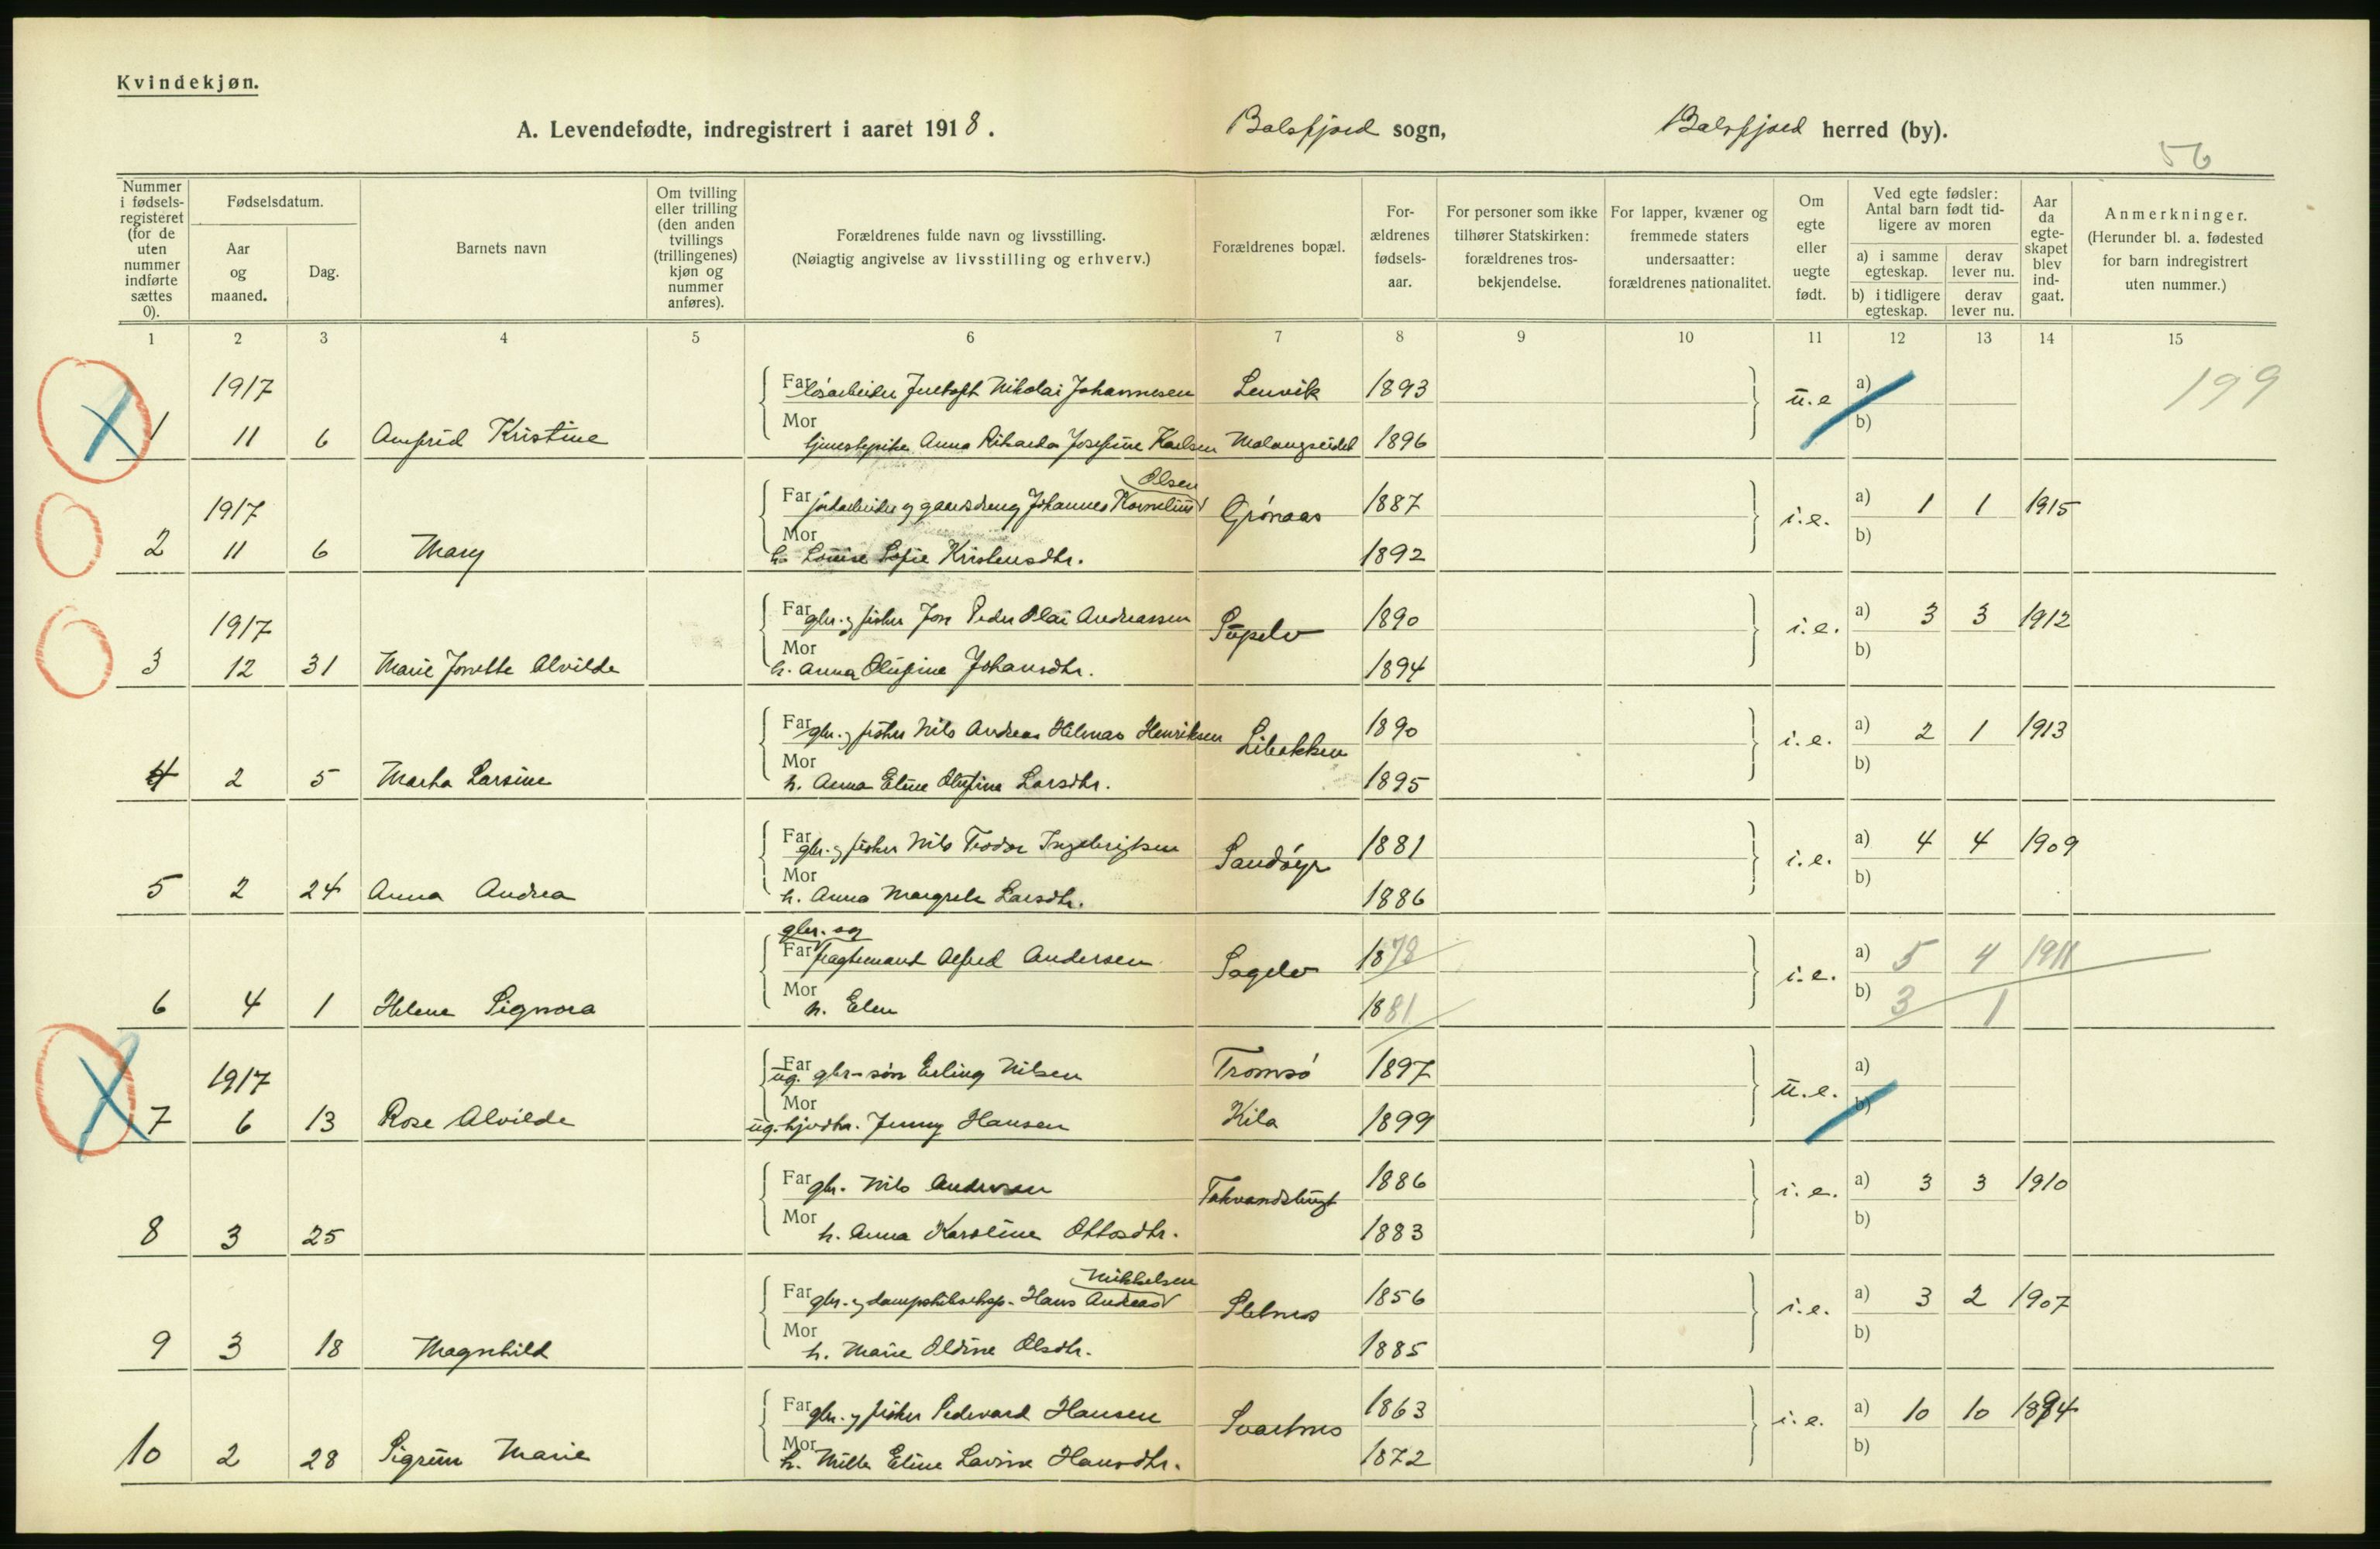 Kvindekjøn.
A. Levendefødte, indregistrert i aaret 1918. Balsfjord sogn, Balsfjord herred (by).
56
Nummer i fødsels-registeret (for de uten nummer indførte sættes 0).
Fødselsdatum.
Aar og maaned.
Dag.
Barnets navn
Om tvilling eller trilling (den anden tvillings (trillingenes) kjøn og nummer anføres).
Forældrenes fulde navn og livsstilling.
(Nøiagtig angivelse av livsstilling og erhverv.)
Forældrenes bopæl.
For-ældrenes fødsels-aar.
For personer som ikke tilhører Statskirken: forældrenes tros-bekjendelse.
For lapper, kvæner og fremmede staters undersaatter: forældrenes nationalitet.
Om egte eller uegte født.
Ved egte fødsler: Antal barn født tid-ligere av moren
a) i samme egteskap. derav lever nu.
b) i tidligere egteskap. derav lever nu.
Aar da egte-skapet blev ind-gaat.
Anmerkninger.
(Herunder bl. a. fødested for barn indregistrert uten nummer.)
1 2 3 4 5 6 7 8 9 10 11 12 13 14 15
1917 Far løsarbeider Nikolai Johannesen Lenvik 1893 u.e a) 199
1 11 6 Kristine Mor Anna Rikarda Josefine Karlsen Malangseidet 1896 b)
Olsen
1917 Far jordarbeider og gaardsdreng Johannes Kornelius Grønaas 1887 i.e. a) 1 1 1915
2 11 6 Mary Mor h. Louise Sofie Kristensdtr. 1892 b)
1917 Far gbr. og fisker Jon Peder Olai Andreassen 1890 i.e. a) 3 3 1912
3 12 31 Marie Jonette Alvilde Mor h. Anna Olufine Johansdtr. 1894 b)
Far gbr. og fisker Nils Andreas Hilmar Henriksen 1890 i.e. a) 2 1 1913
4 2 5 Marha Larsine Mor h. Anna Eline Olufine Larsdtr. 1895 b)
Far gbr. og fisker Nils Teodor Ingebrigtsen Sandøyr 1881 i.e. a) 4 4 1909
5 2 24 Anna Andrea Mor h. Anna Margrete Larsdtr. 1886 b)
gbr. og
Far fragtemand Alfred Andersen Sagelv 1878 i.e. a) 5 4 1911
6 4 1 Helene Signora Mor h. Elen 1881 b) 3 1
1917 Far ug. gbr-søn Erling Nilsen Tromsø 1897 u.e. a)
7 6 13 Rose Alvilde Mor ug. Jenny Hansen Kila 1899 b)
Far gbr. Nils Andersen Takvandsbugt 1886 i.e. a) 3 3 1910
8 3 25 Mor h. Anna Karoline Ottosdtr. 1883 b)
Mikkelsen
Far gbr. og Hans Andreas Sletnes 1856 i.e. a) 3 2 1907
9 3 18 Magnhild Mor h. Marie Oldine Olsdtr. 1885 b)
Far gbr. og fisker Pedevard Hansen Svartnes 1863 i.e. a) 10 10 1894
10 2 28 Sigrun Marie Mor h. Milla Eline Lavine Hansdtr. 1872 b)